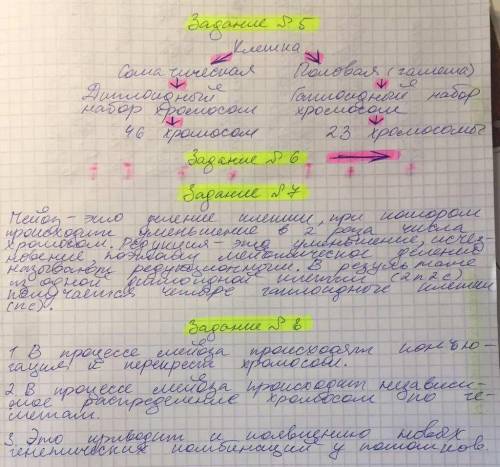 Задание №5
Клетка
Соматическая Половая (гамета)
Диплоидный Гаплоидный набор
набор хромосом хромосом
46 хромосом 23 хромосомы
Задание №6
Задание №7
Мейоз - это деление клетки, при котором
происходит уменьшение в 2 раза числа
хромосом. Редукция - это уменьшение, исчез-
новение, поэтому мейотическое деление
называют редукционным. В результате
из одной диплоидной клетки (2n2c)
получается четыре гаплоидные клетки
(nc).
Задание №8
1 В процессе мейоза происходят конъю-
гация и перекрест хромосом.
2. В процессе мейоза происходит независи-
мое распределение хромосом по га-
метам.
3. Это приводит к появлению новых
генетических комбинаций у потомков.